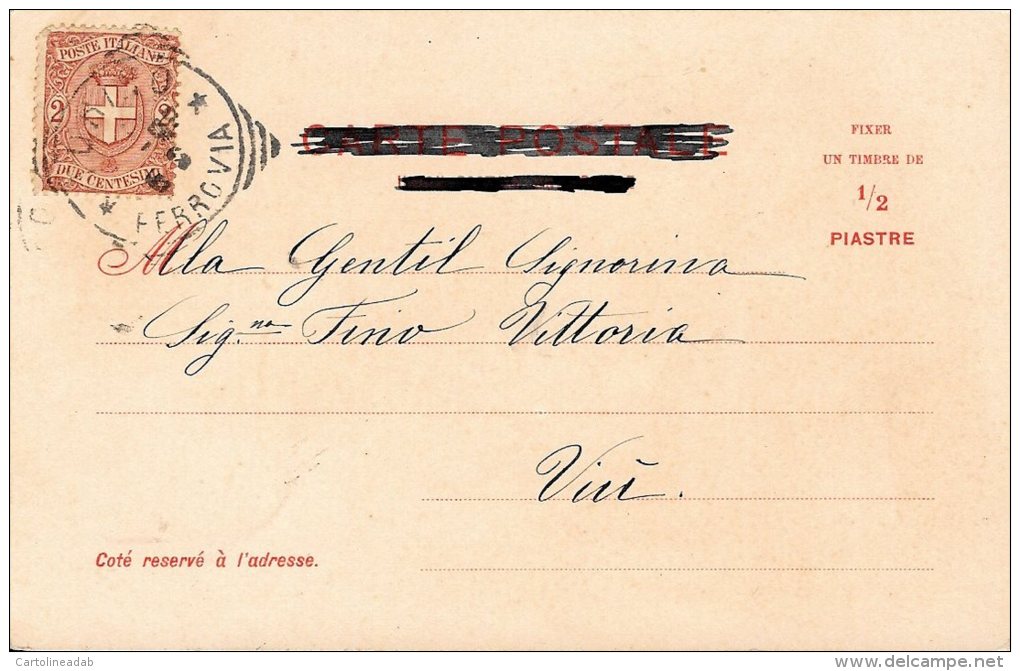 POSTE ITALIANE
2 2
DUE CENTESIMI
FERROVIA
CARTE POSTALE
FIXER
UN TIMBRE DE
1/2
PIASTRE
Alla Gentil Signorina
Sig.na Fino Vittoria
Viù.
Coté reservé à l'adresse.
Cartolineadab
delcampe.net